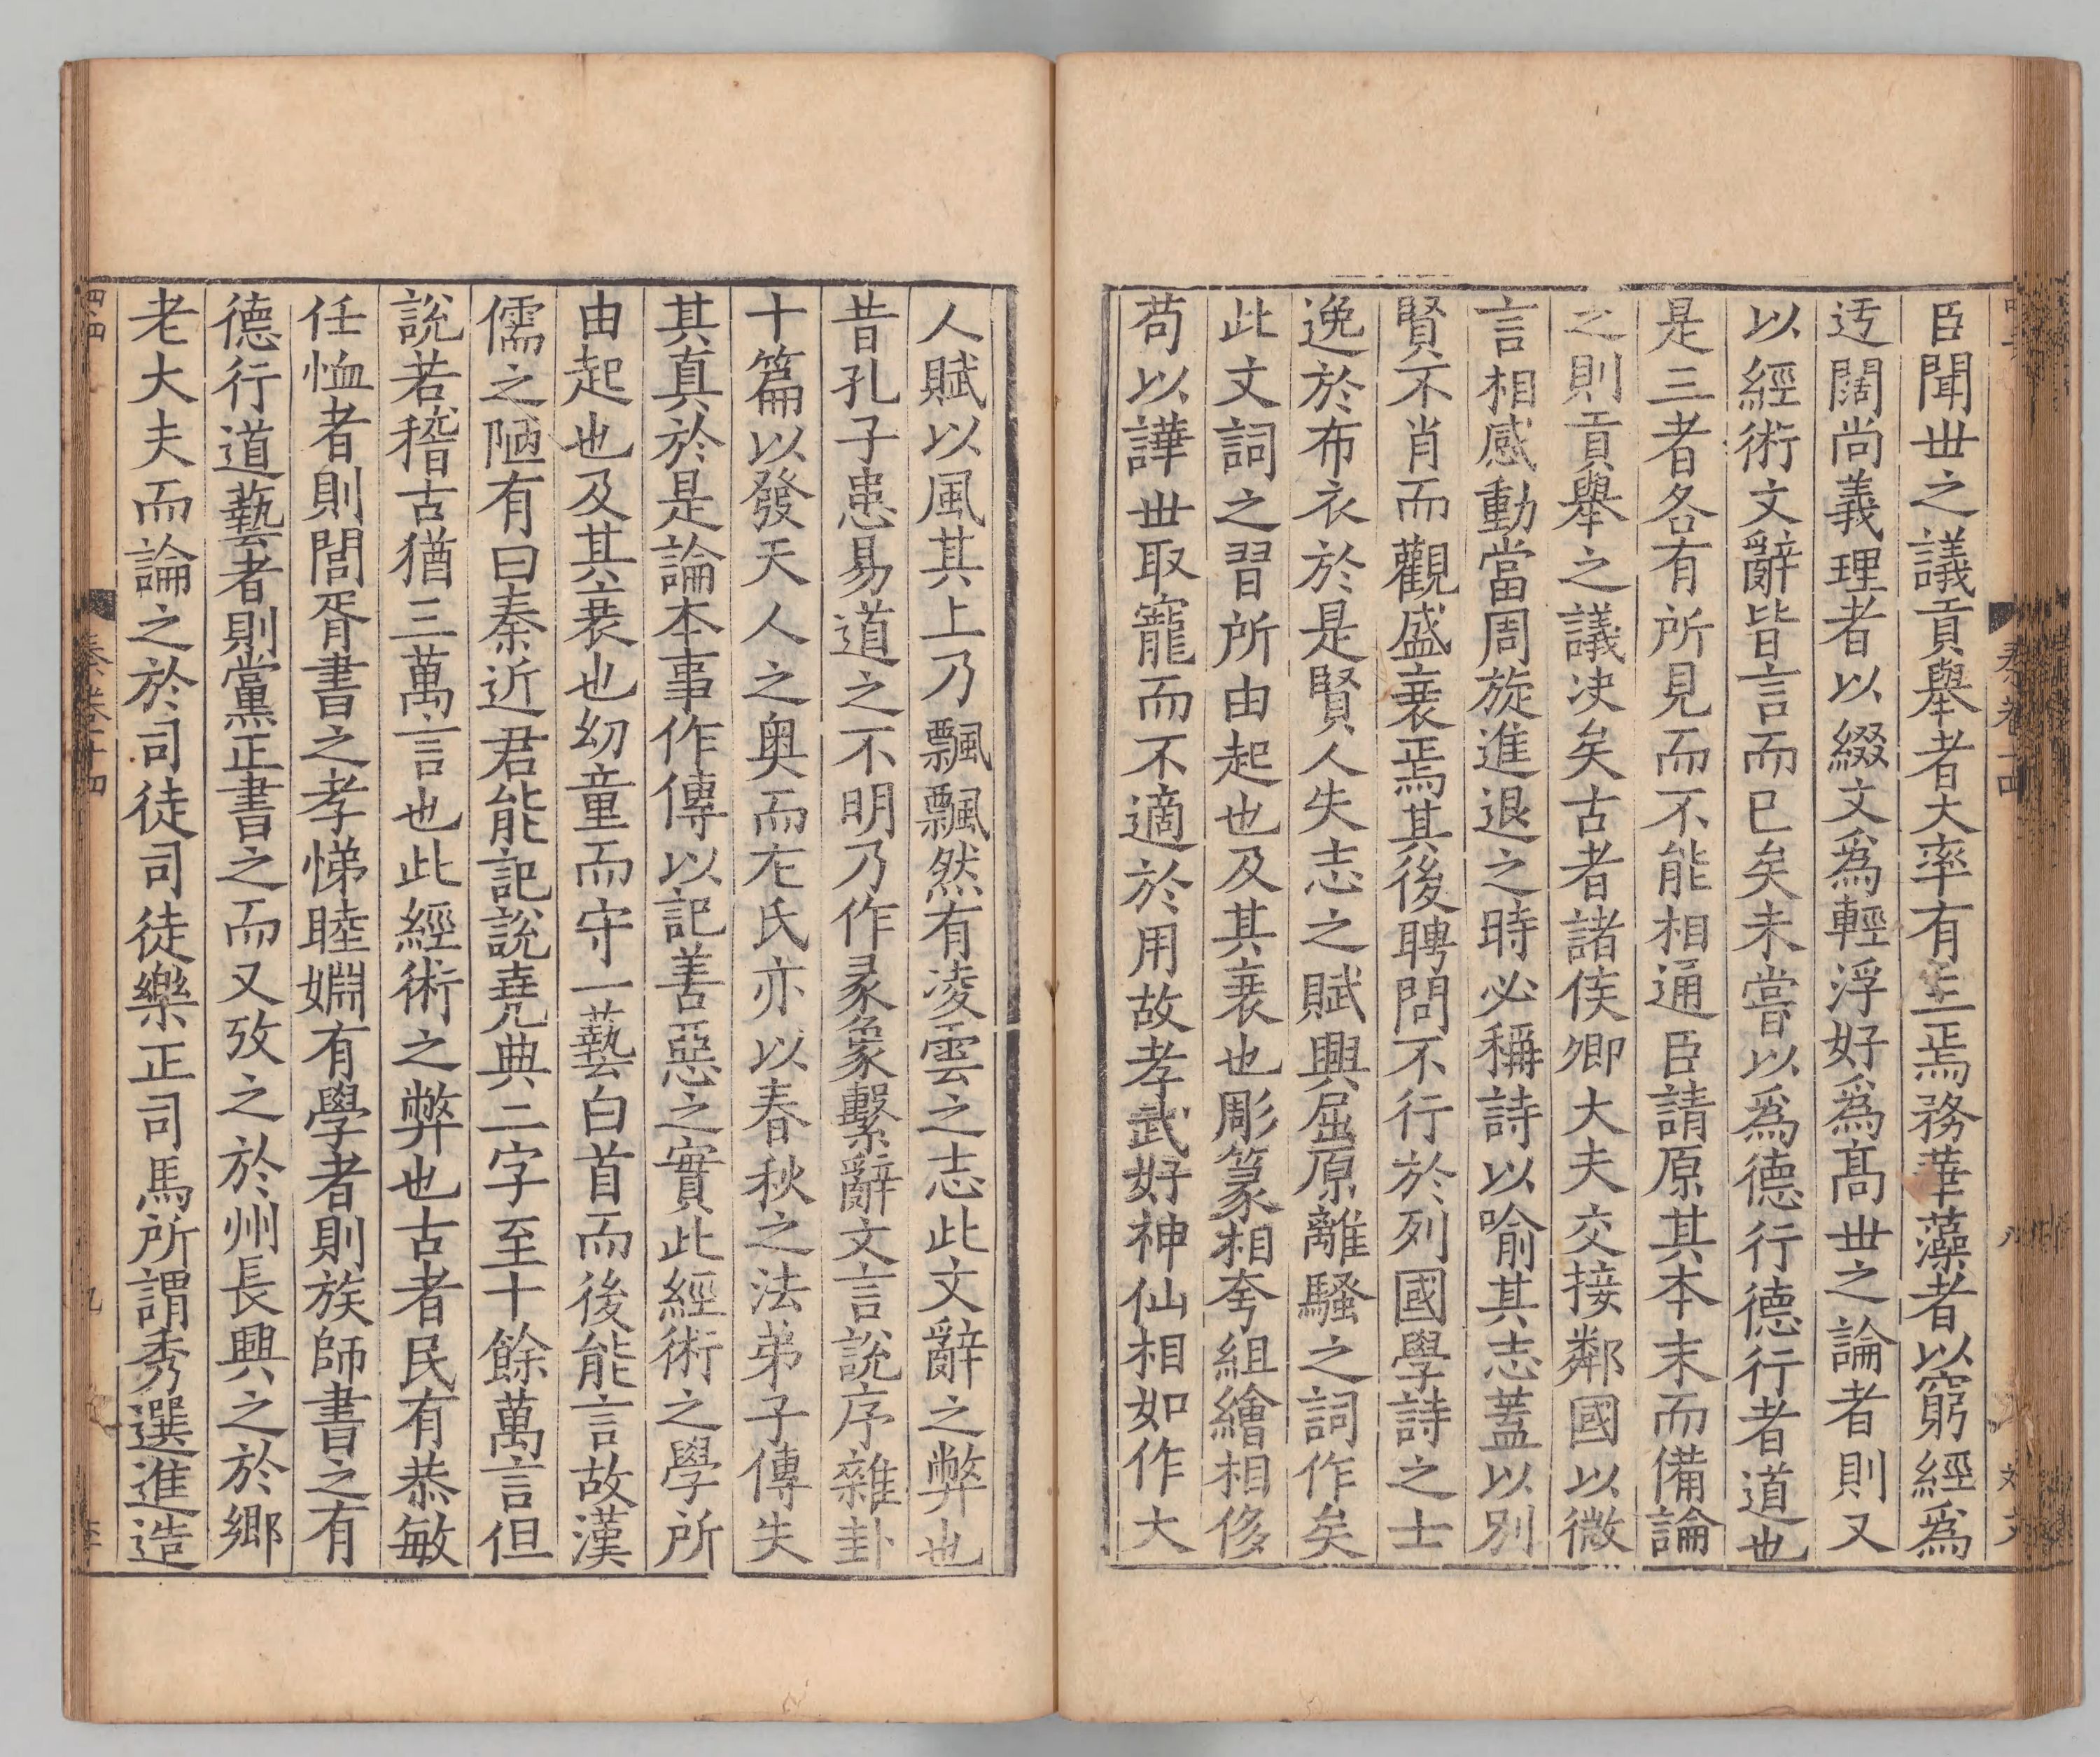 臣聞世之議貢舉者大率有三焉務華藻者以窮經爲
迃闊尚義理者以綴文爲輕浮好爲髙世之論者則又
以經術文辭皆言而已矣未嘗以爲德行德行者道也
是三者各有所見而不能相通臣請原其本末而備論
之則貢舉之議决矣古者諸侯卿大夫交接鄰國以微
言相感動當周旋進退之時必稱詩以喻其志蓋以别
賢不肖而觀盛衰焉其後聘問不行於列國學詩之士
逸於布衣於是賢人失志之賦興屈原離騷之詞作矣
此文詞之習所由起也及其衰也彫篆相夸組繪相侈
苟以譁世取寵而不適於用故孝武好神仙相如作大
人賦以風其上乃飄飄然有凌雲之志此文辭之弊也
昔孔子患易道之不明乃作彖象繫辭文言說序雜卦
十篇以發天人之奥而左氏亦以春秋之法弟子傳失
其真於是論本事作傳以記善惡之實此經術之學所
由起也及其衰也幼童而守一藝白首而後能言故漢
儒之陋有曰秦近君能記說堯典二字至十餘萬言但
說若稽古猶三萬言也此經術之弊也古者民有恭敏
任恤者則閭胥書之孝悌睦婣有學者則族師書之有
德行道藝者則黨正書之而又攷之於州長興之於鄉
老大夫而論之於司徒司徒樂正司馬所謂秀選進造
秦卷十四
九